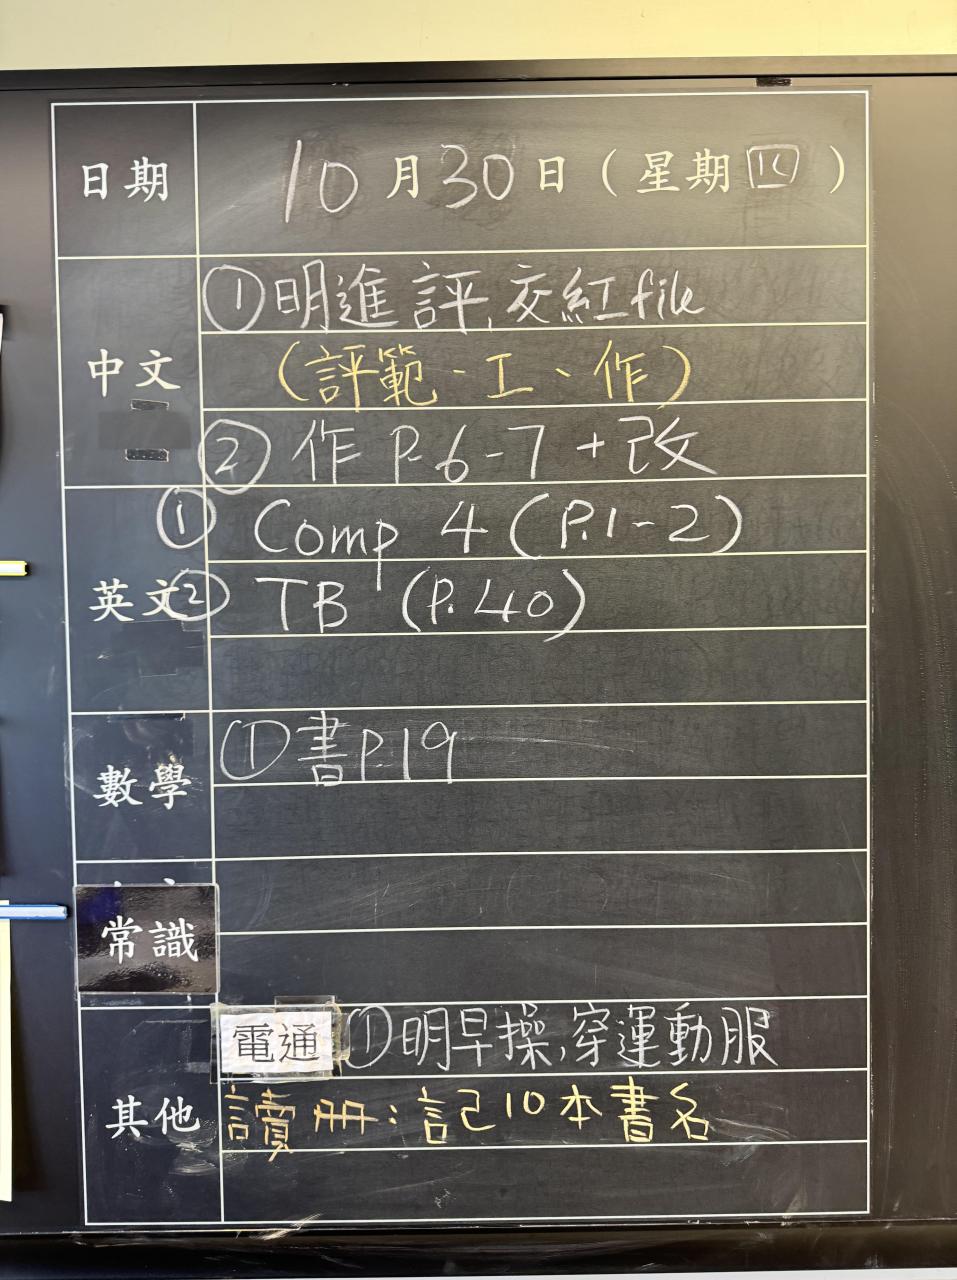 日期 10月30日（星期四）
中文
①明進評,交紅file
(評範、工、作)
②作P.6-7+改
英文
①Comp 4 (P.1-2)
②TB (P.40)
數學
①書P.19
常識
其他
電通 ①明早操,穿運動服
讀冊:記10本書名